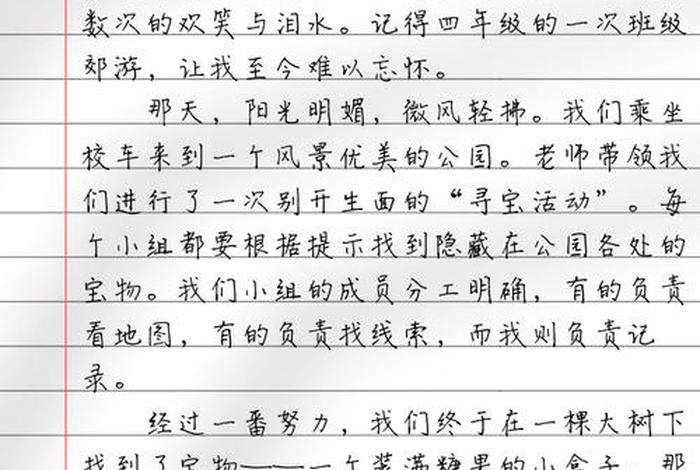 数次的欢笑与泪水。记得四年级的一次班级
郊游，让我至今难以忘怀。
那天，阳光明媚，微风轻拂。我们乘坐
校车来到一个风景优美的公园。老师带领我
们进行了一次别开生面的“寻宝活动”。每
个小组都要根据提示找到隐藏在公园各处的
宝物。我们小组的成员分工明确，有的负责
看地图，有的负责找线索，而我则负责记
录。
经过一番努力，我们终于在一棵大树下
找到了宝物——一个装满糖果的小盒子。那